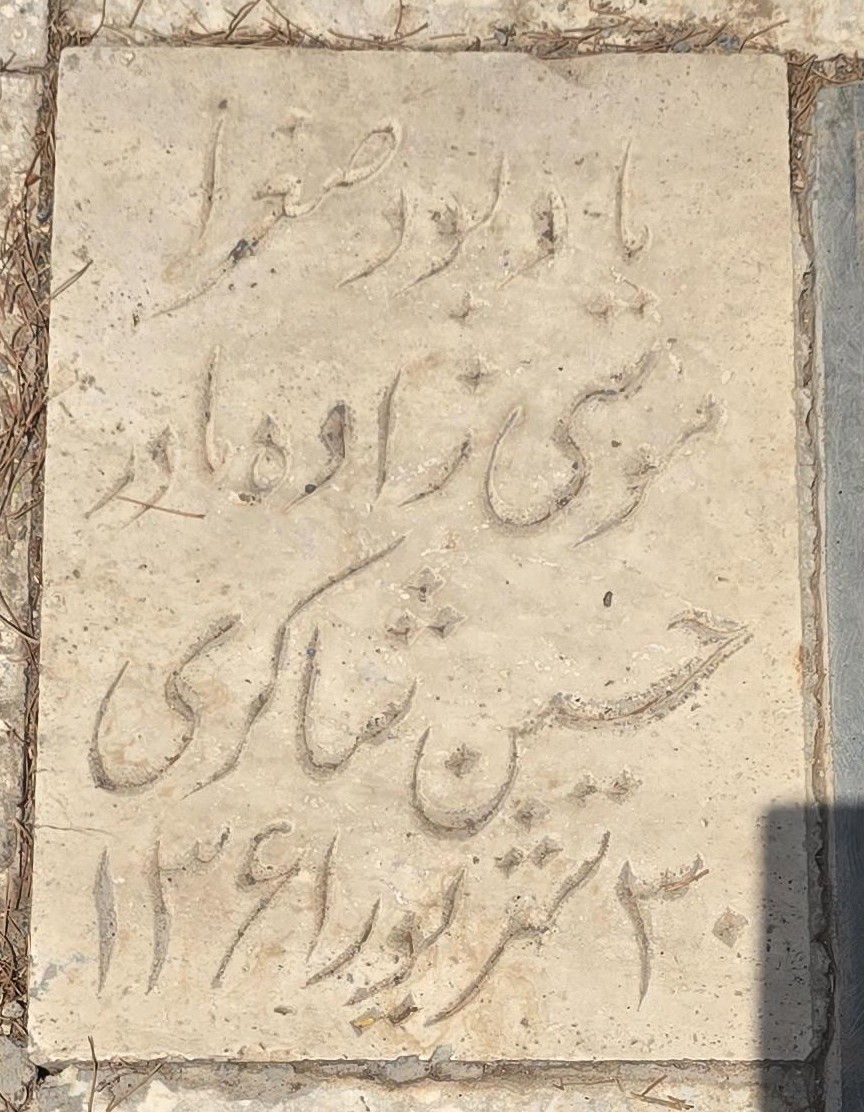 یادبود صغرا
موسی زاده مادر
حسین شاکری
۲۰ شهریور ۱۳۶۱